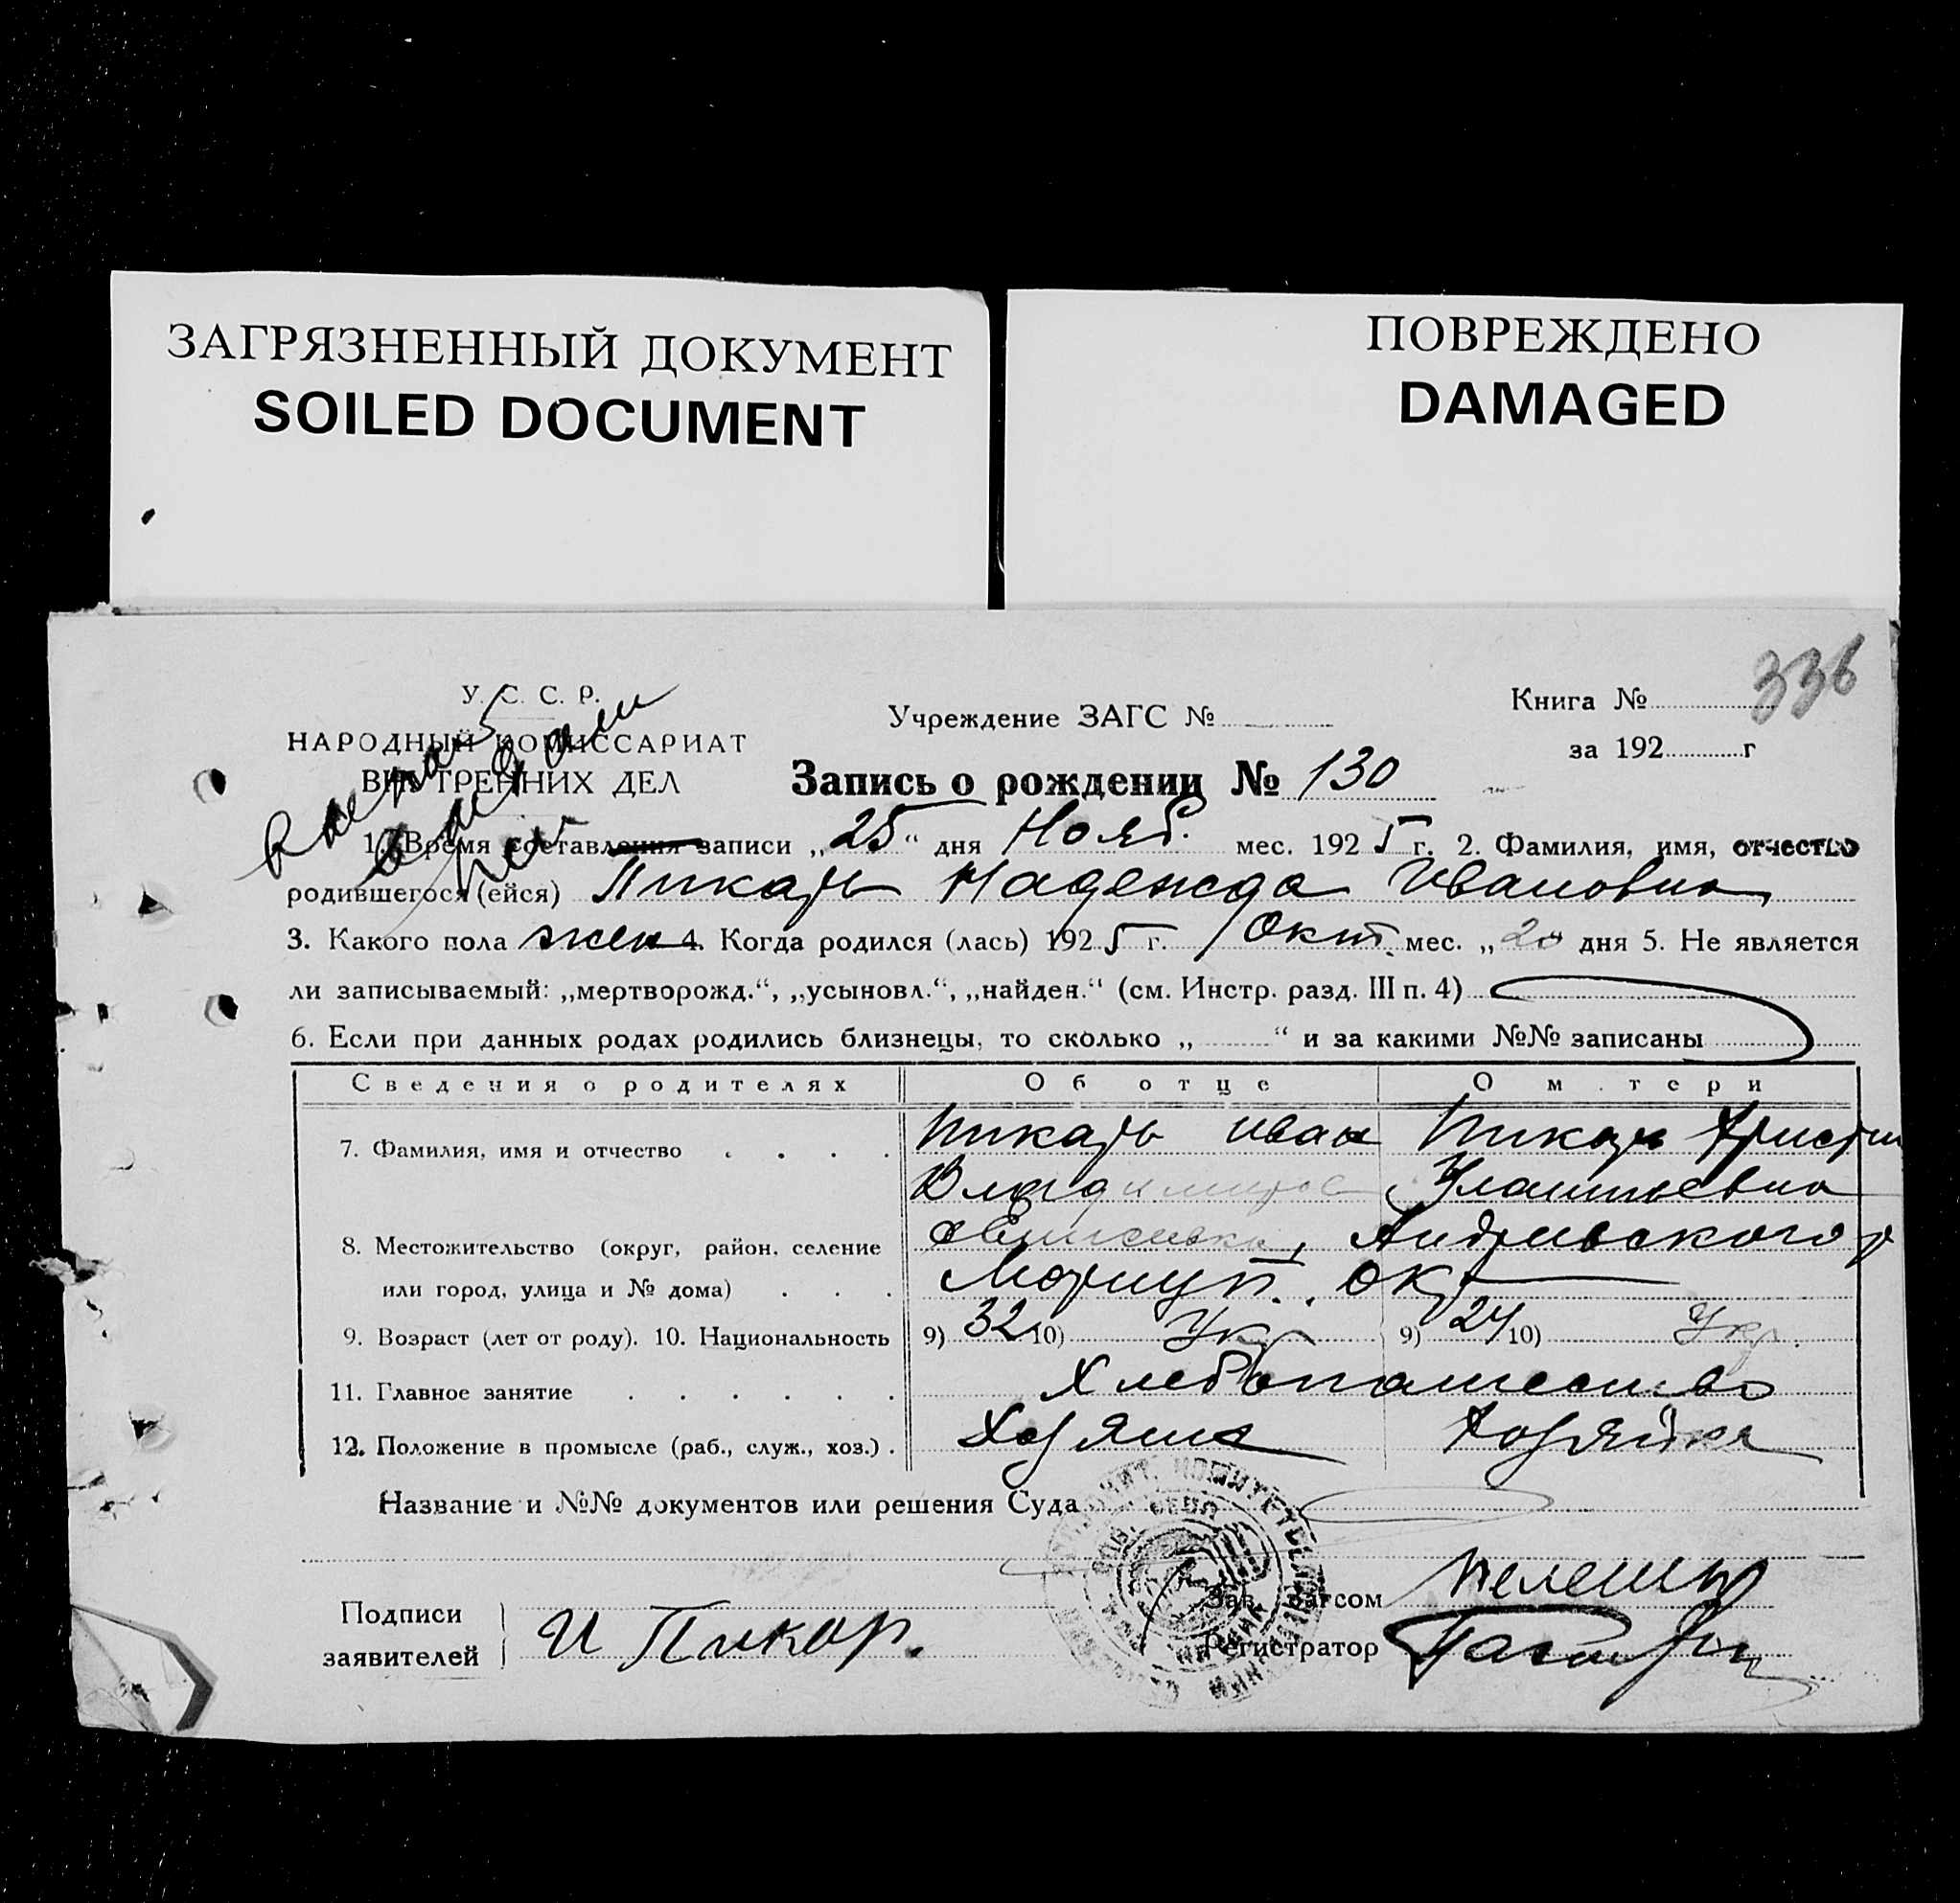 ЗАГРЯЗНЕННЫЙ ДОКУМЕНТ
SOILED DOCUMENT
ПОВРЕЖДЕНО
DAMAGED
336
У. С. С. Р.
НАРОДНЫЙ КОМИССАРИАТ
ВНУТРЕННИХ ДЕЛ
Учреждение ЗАГС №
Книга №
за 192 г
Запись о рождении № 130
1. Время составления записи „25“ дня Нояб. мес. 1925 г. 2. Фамилия, имя, отчество
родившегося (ейся) Пикарь Надежда Ивановна
3. Какого пола жен 4. Когда родился (лась) 1925 г. Окт. мес. „20 дня 5. Не является
ли записываемый: „мертворожд.“, „усыновл.“, „найден.“ (см. Инстр. разд. III п. 4)
6. Если при данных родах родились близнецы, то сколько „ “ и за какими №№ записаны
Сведения о родителях Об отце О м тери
7. Фамилия, имя и отчество Пикарь Иван Пикарь Христин
Владимиров
8. Местожительство (округ, район, селение Андреевского р
или город, улица и № дома) Мариуп. окр
9. Возраст (лет от роду). 10. Национальность 9) 32 10) Укр 9) 24 10) Укр.
11. Главное занятие Хлебопашество
12. Положение в промысле (раб., служ., хоз.) Хозяин Хозяйка
Название и №№ документов или решения Суда
Зав. загсом
Подписи
заявителей И Пикар.
Регистратор